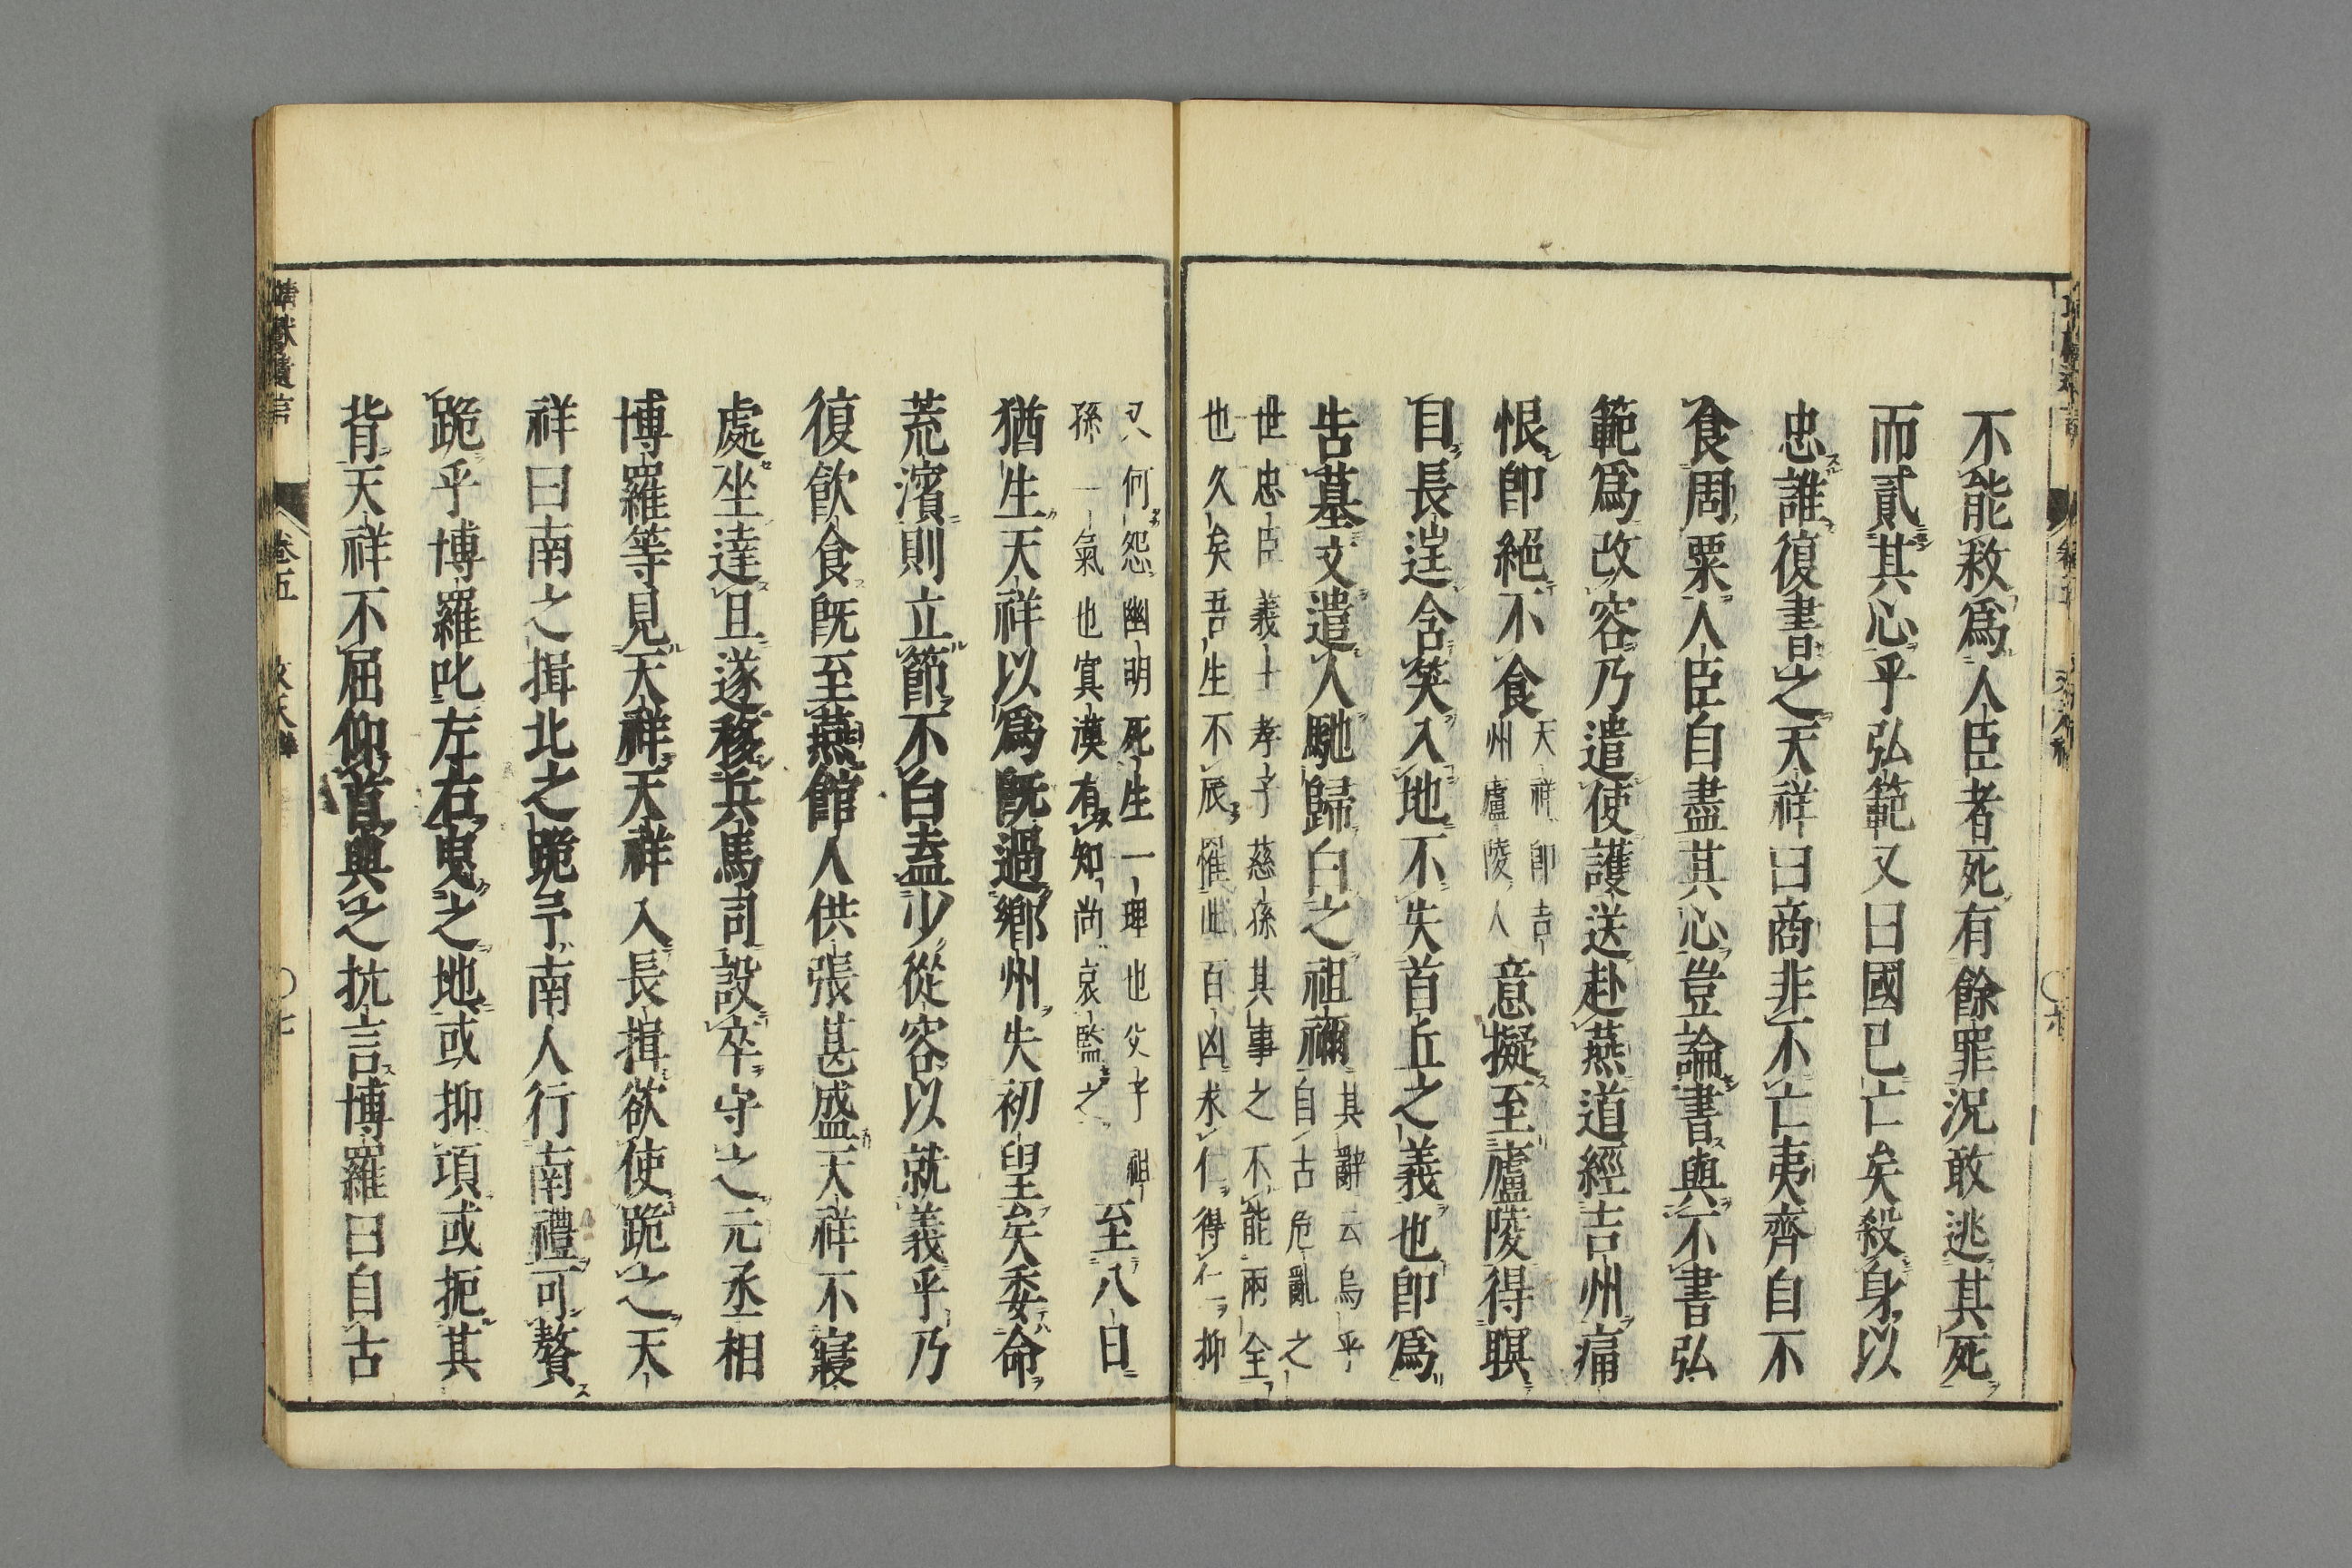 不能救爲人臣者死有餘罪況敢逃其死
而貳其心乎弘範又曰國已亡矣殺身以
忠誰復書之天祥曰商非不亡夷齊自不
食周粟人臣自盡其心豈論書與不書弘
範爲改容乃遣使護送赴燕道經吉州痛
恨卽絕不食天祥卽吉州廬陵人意擬至廬陵得瞑
目長逝含笑入地不失首丘之義也卽爲
告墓文遣人馳歸白之祖禰其辭云烏乎自古危亂之
世忠臣義士孝子慈孫其事之不能兩全
也久矣吾生不辰罹此百凶求仁得仁抑
又何怨幽明死生一理也父子祖
孫一氣也冥漠有知尚哀監之至八日
猶生天祥以爲旣過鄉州失初望矣委命
荒濱則立節不白盍少從容以就義乎乃
復飮食旣至燕館人供張甚盛天祥不寢
處坐達旦遂移兵馬司設卒守之元丞相
博羅等見天祥天祥入長揖欲使跪之天
祥曰南之揖北之跪予南人行南禮可贅
跪乎博羅叱左右曳之地或抑項或扼其
背天祥不屈仰首與之抗言博羅曰自古
靖獻遺言 卷五 文天祥 〇七